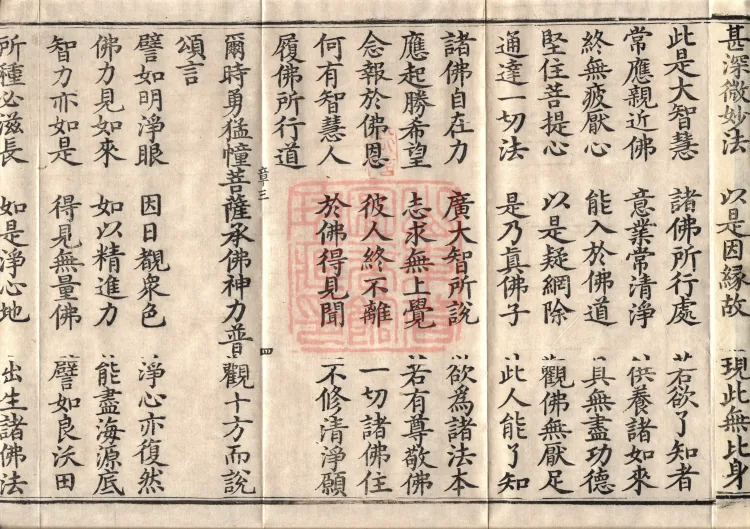 甚深微妙法　以是因緣故　現此無比身
此是大智慧　諸佛所行處　若欲了知者
常應親近佛　意業常清淨　供養諸如來
終無疲厭心　能入於佛道　具無盡功德
堅住菩提心　以是疑網除　觀佛無厭足
通達一切法　是乃真佛子　此人能了知
諸佛自在力　廣大智所說　欲為諸法本
應起勝希望　志求無上覺　若有尊敬佛
念報於佛恩　彼人終不離　一切諸佛住
何有智慧人　於佛得見聞　不修清淨願
履佛所行道
章三　四
爾時勇猛幢菩薩承佛神力普觀十方而說
頌言
譬如明淨眼　因日覩衆色　淨心亦復然
佛力見如來　如以精進力　能盡海源底
智力亦如是　得見無量佛　譬如良沃田
所種必滋長　如是淨心地　出生諸佛法